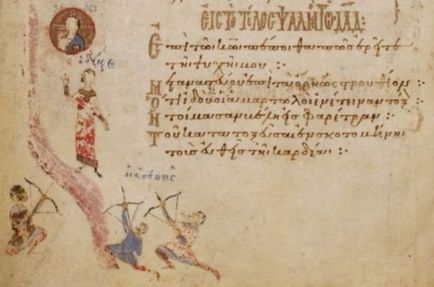 ΕΙΣ ΤΟ ΤΕΛΟΣ ΨΑΛΜ ΤΩ ΔΑΔ:
Ἐπὶ τῶ κω πέποιθα πῶς ἐρεῖτε
τῆ ψυχῆ μου
Μεταναστεύου ἐπὶ τὰ ὄρη ὡς στρουθίον :·
Ὅτι ἰδοὺ οἱ ἁμαρτωλοὶ ἐνέτειναν τόξ
Ἡτοίμασαν βέλη εἰς φαρέτραν :·
Τοῦ κατατοξεῦσαι ἐν σκοτομήνη
τοὺς εὐθεῖς τῆ καρδία :·